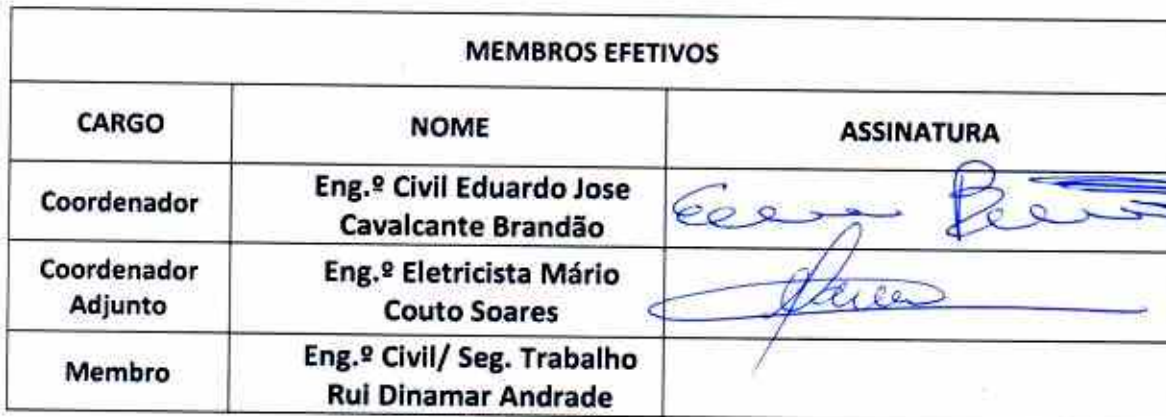 MEMBROS EFETIVOS
CARGO NOME ASSINATURA
Coordenador
Eng.º Civil Eduardo Jose
Cavalcante Brandão
Coordenador
Adjunto
Eng.º Eletricista Mário
Couto Soares
Membro
Eng.º Civil/ Seg. Trabalho
Rui Dinamar Andrade